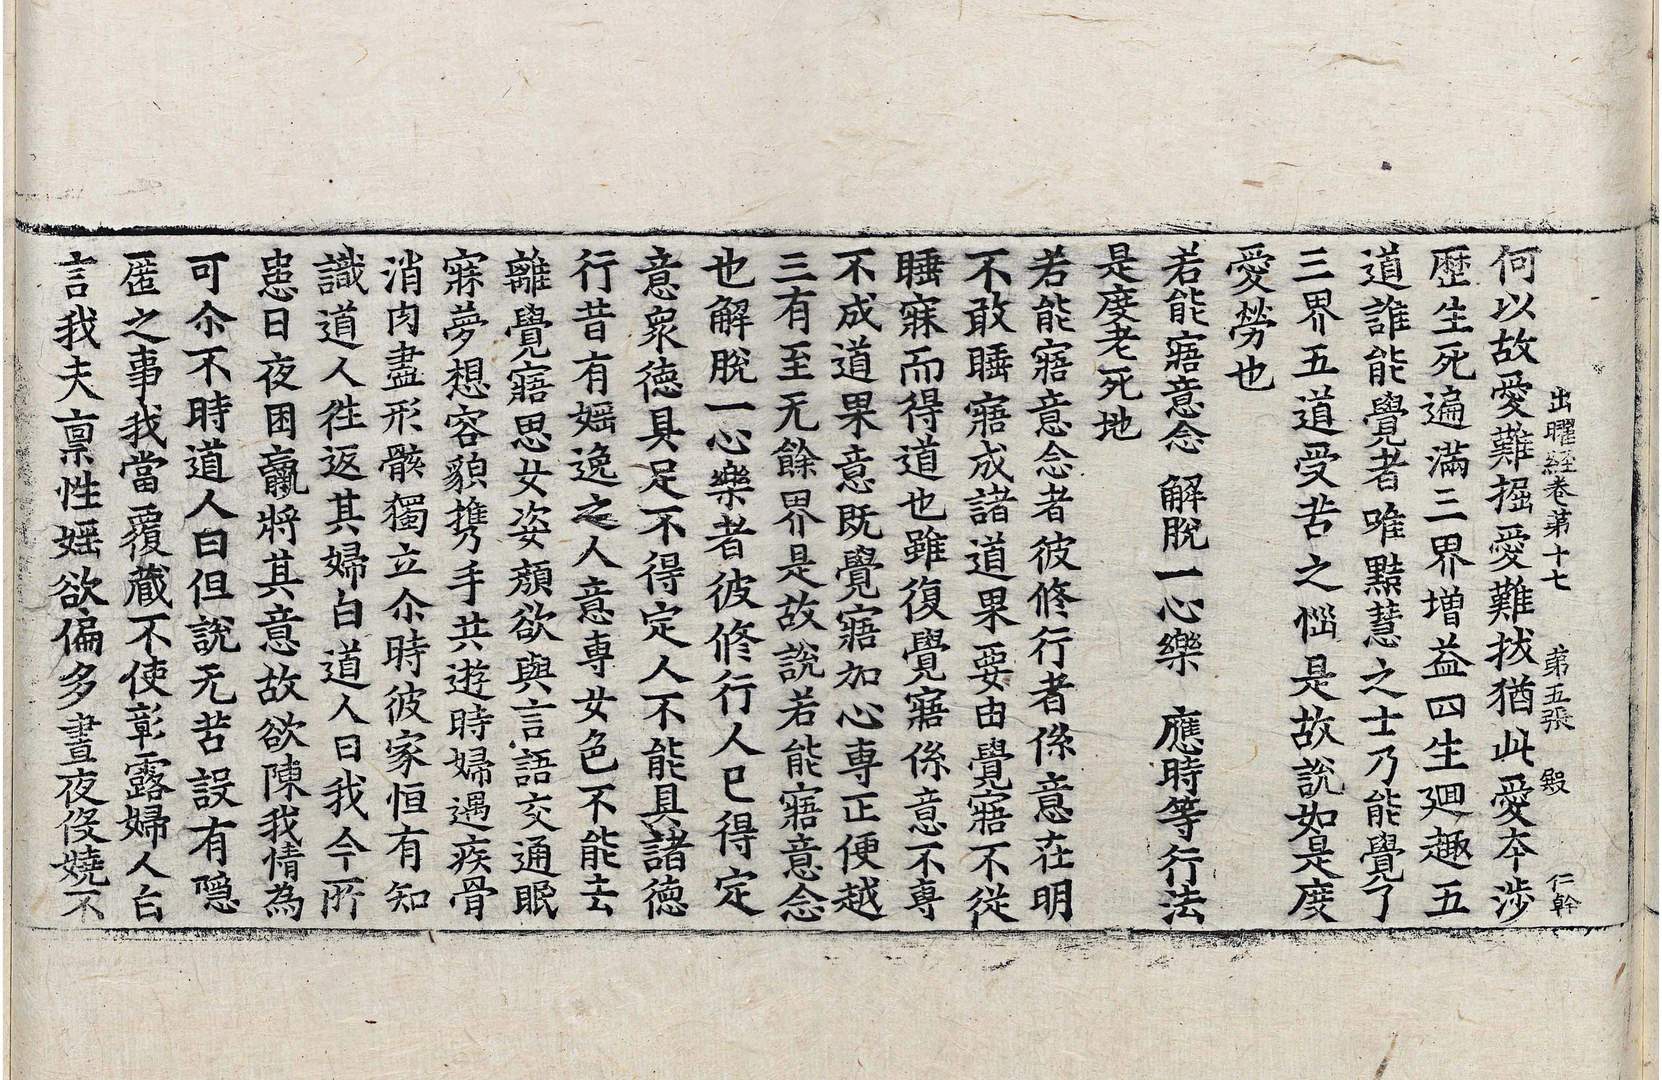 出曜経卷第十七　第五張　殿　仁幹
何以故愛難掘愛難拔猶此愛夲涉
歴生死遍滿三界増益四生𢌞趣五
道誰能覺者唯黠慧之士乃能覺了
三界五道受苦之惱是故說如是度
愛勞也
若能寤意念　解脫一心樂　應時等行法
是度老死地
若能寤意念者彼修行者係意在明
不敢睡寤成諸道果要由覺寤不從
睡寐而得道也雖復覺寤係意不專
不成道果意既覺寤加心専正便越
三有至无餘界是故說若能寤意念
也解脫一心樂者彼修行人已得定
意衆德具足不得定人不能具諸德
行昔有婬逸之人意專女色不能去
離覺寤思女姿顔欲與言語交通眠
寐夢想容貌携手共遊時婦遇疾骨
消肉盡形骸獨立尒時彼家恒有知
識道人徃返其婦白道人曰我今所
患日夜困羸將其意故欲陳我情為
可尒不時道人曰但說无苦設有隱
匿之事我當覆藏不使彰露婦人白
言我夫禀性婬欲偏多晝夜伇嬈不